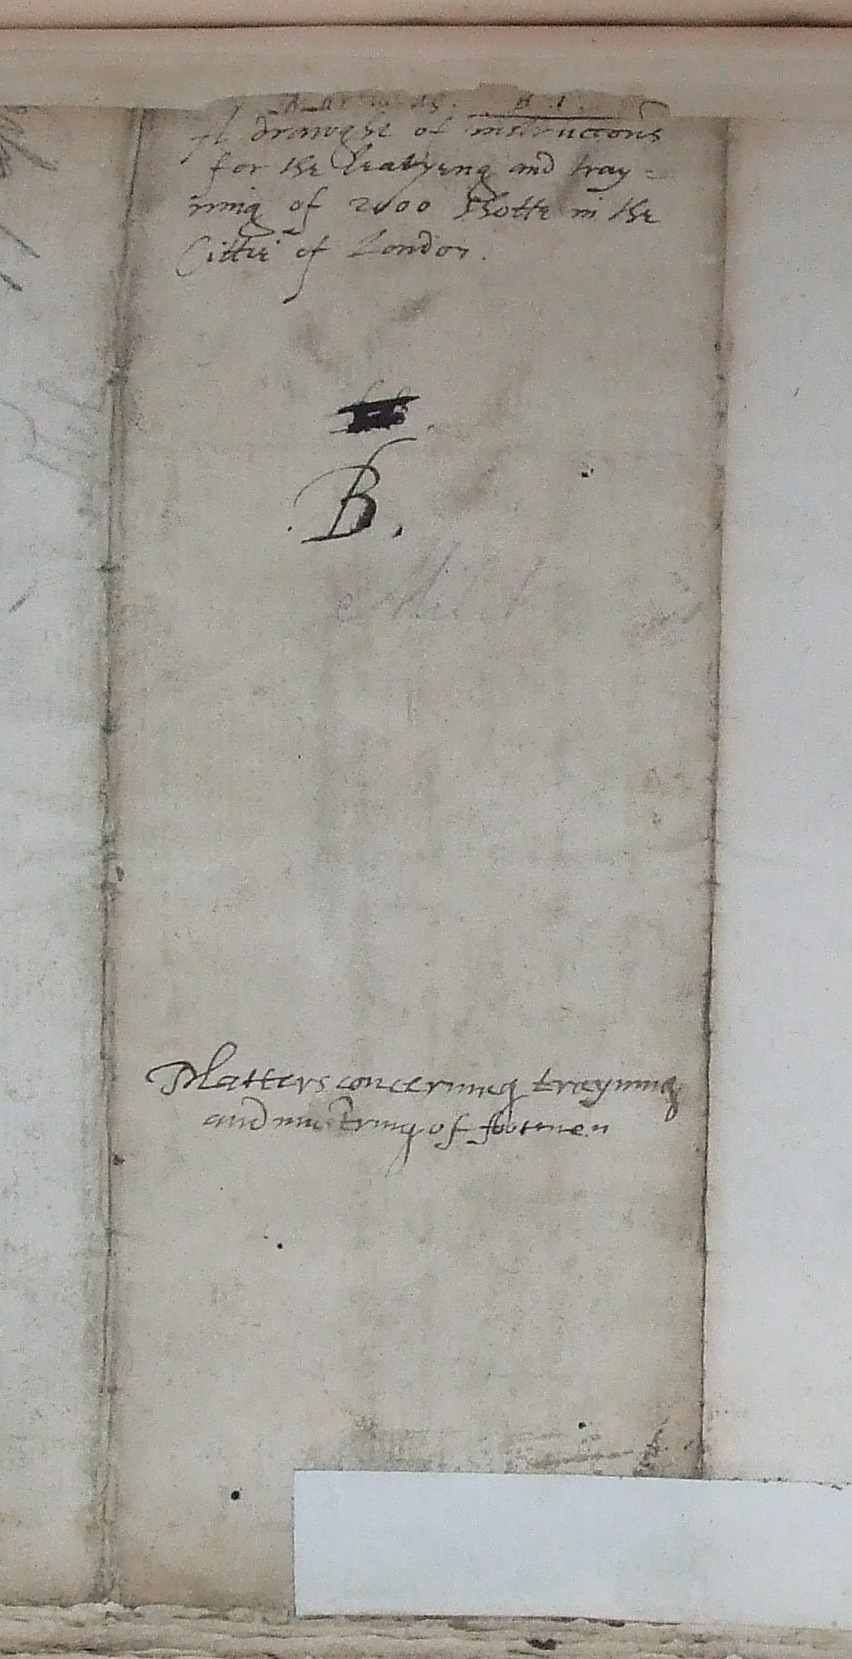 A draught of instructions
for the leavyeng and tray=
ning of 2000 Shotte in the
Cittie of London.
B.
Milit
Matters concerning trayning
and mustring of footmen